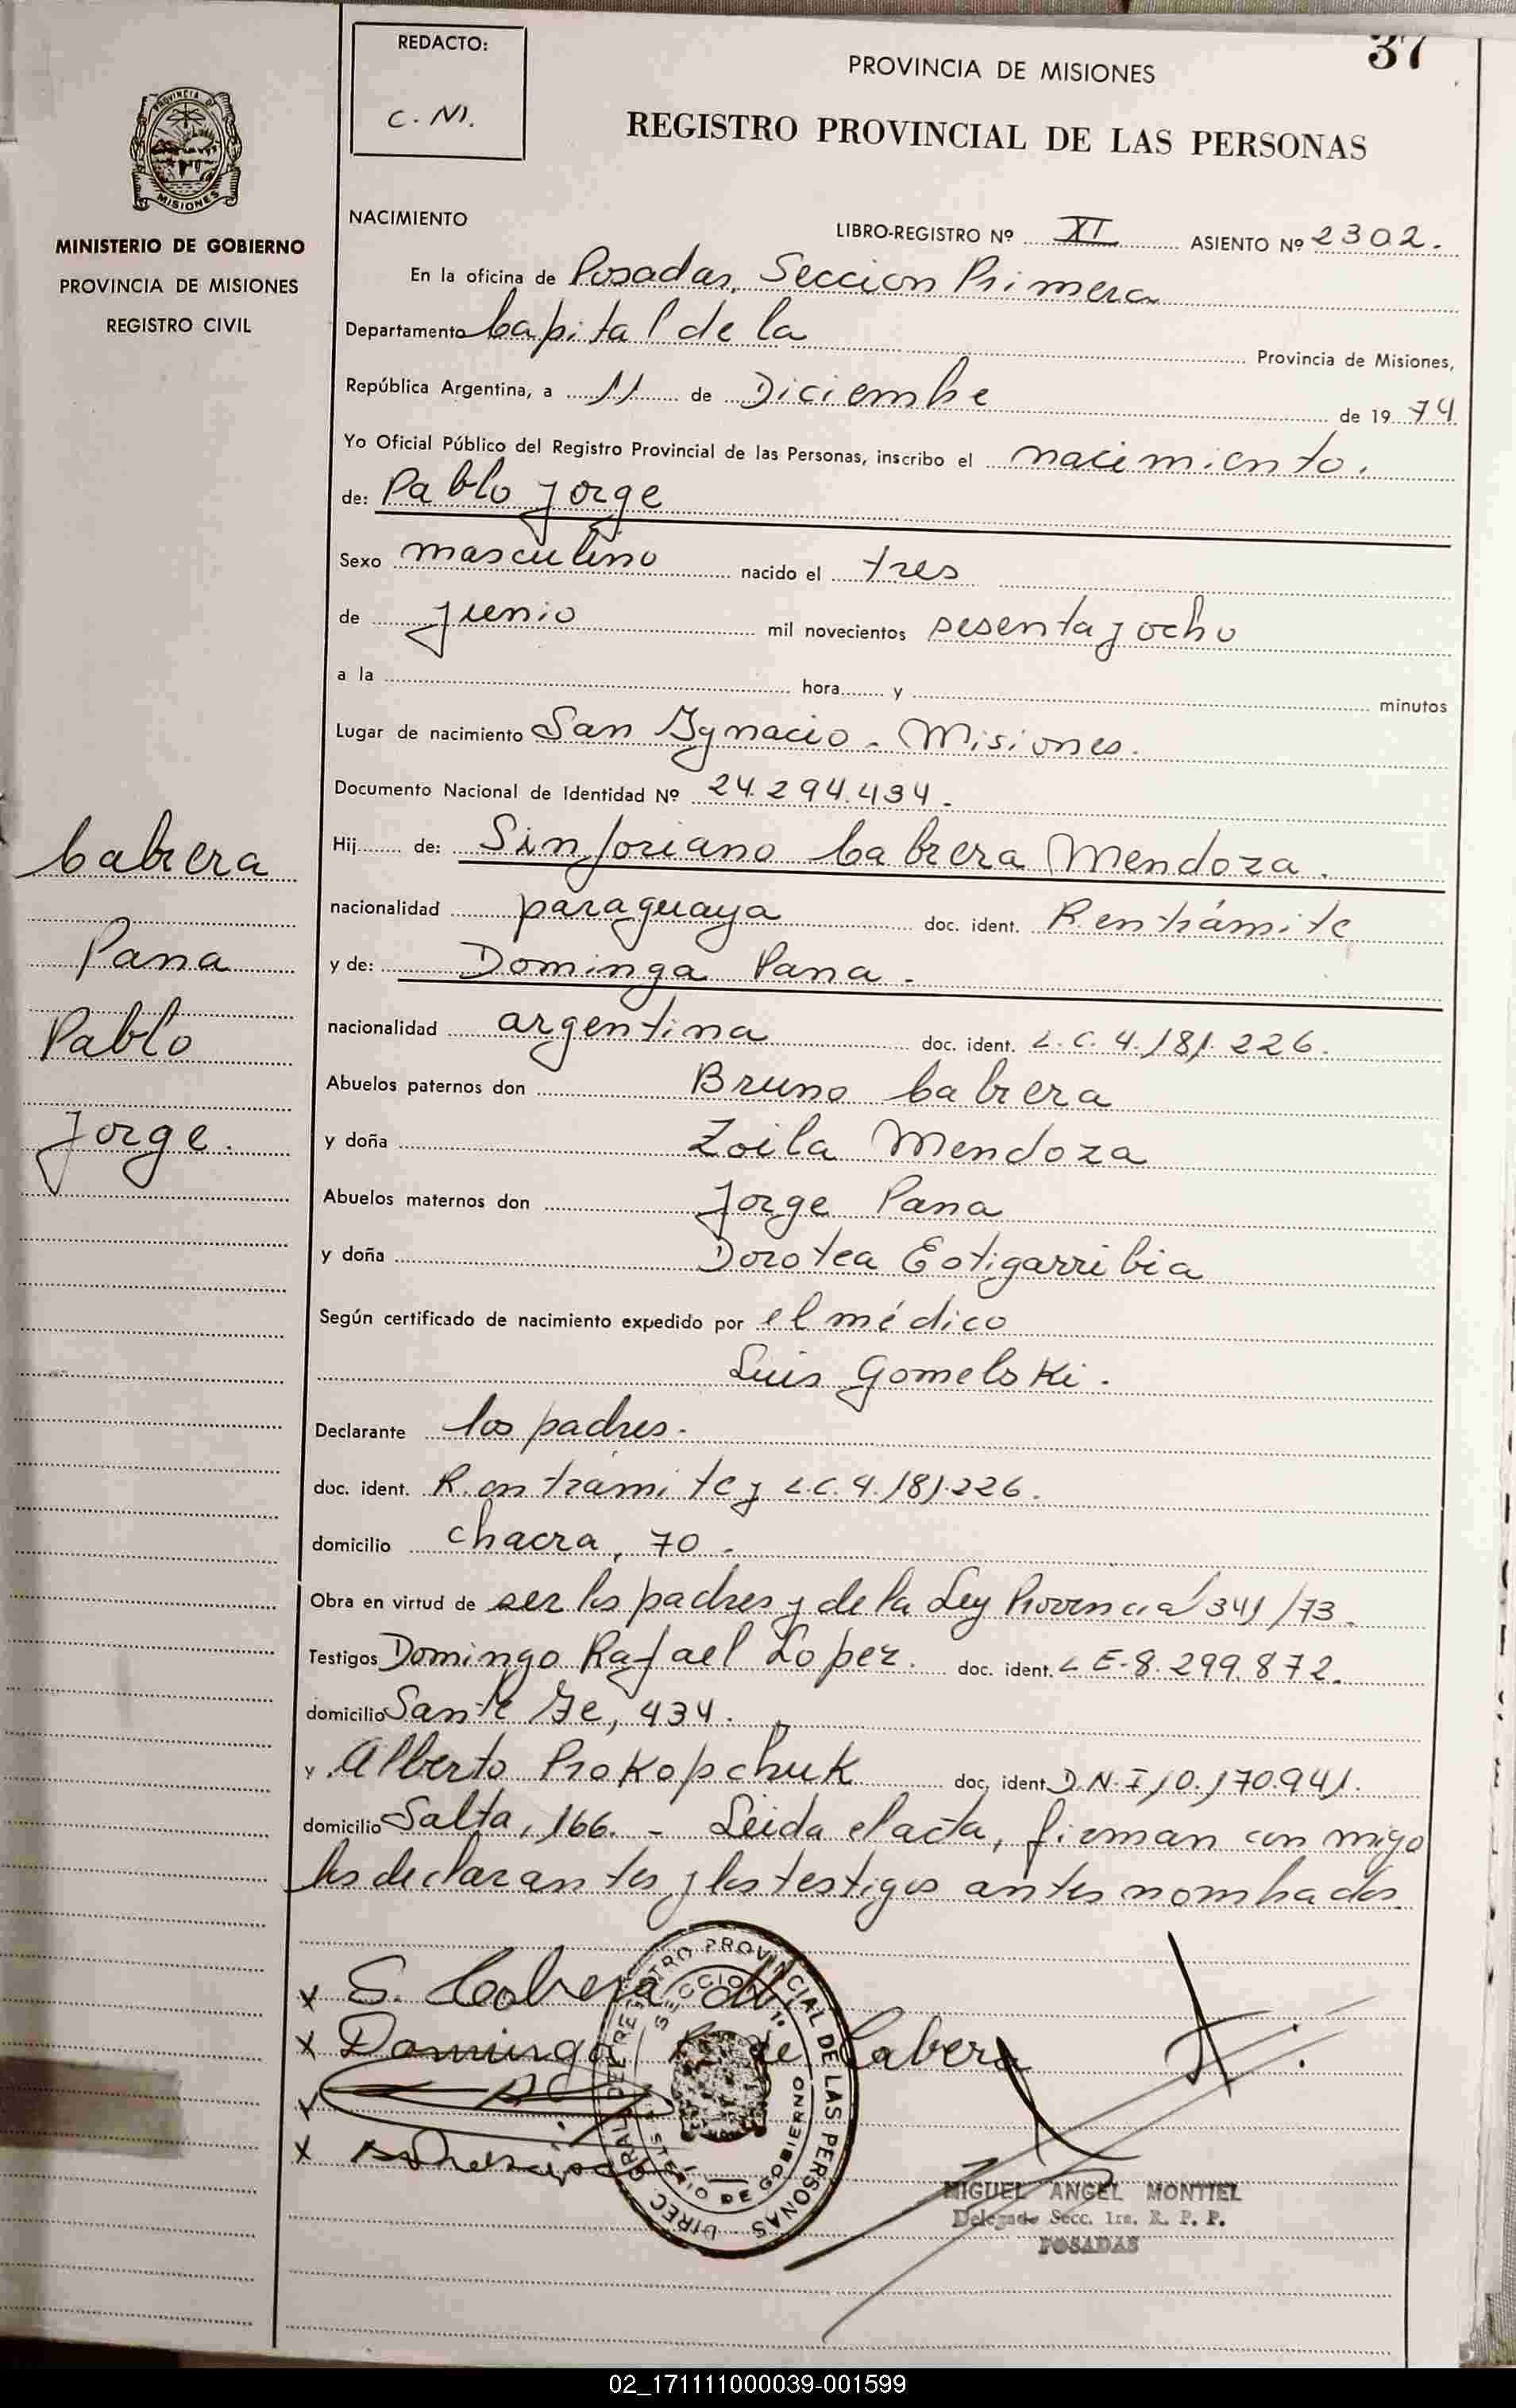 37
REDACTO:
C. M.
PROVINCIA DE MISIONES
REGISTRO PROVINCIAL DE LAS PERSONAS
PROVINCIA DE
MISIONES
MINISTERIO DE GOBIERNO
PROVINCIA DE MISIONES
REGISTRO CIVIL
NACIMIENTO
LIBRO-REGISTRO Nº XI ASIENTO Nº 2302.
En la oficina de Posadas, Seccion Primera
Departamento Capital de la Provincia de Misiones,
República Argentina, a 11 de Diciembre de 1974
Yo Oficial Público del Registro Provincial de las Personas, inscribo el nacimiento.
de: Pablo Jorge
Sexo masculino nacido el tres
de junio mil novecientos sesenta y ocho
a la hora y minutos
Lugar de nacimiento San Ygnacio - Misiones.
Documento Nacional de Identidad Nº 24.294.434.
Hij de: Sinforiano Cabrera Mendoza.
nacionalidad paraguaya doc. ident. R. en trámite
y de: Dominga Pana.
nacionalidad argentina doc. ident. L.C. 4.181.226.
Abuelos paternos don Bruno Cabrera
y doña Zoila Mendoza
Abuelos maternos don Jorge Pana
y doña Dorotea Estigarribia
Según certificado de nacimiento expedido por el médico
Luis Gomelski.
Declarante los padres.
doc. ident. R. en trámite y L.C. 4.181.226.
domicilio chacra, 70.
Obra en virtud de ser los padres y de la Ley Provincial 341/73.
Testigos Domingo Rafael Lopez. doc. ident. L E-8.299.872.
domicilio Santa Fe, 434.
y Alberto Prokopchuk doc, ident D.N.I 10.170.941.
domicilio Salta, 166. - Leida el acta, firman con migo
los declarantes y los testigos antes nombrados.
Cabrera
Pana
Pablo
Jorge.
x S. Cabrera M
x Dominga P de Cabrera
x
x
DIREC. GRAL. DEL REGISTRO PROVINCIAL DE LAS PERSONAS
SECCION 1ª
MINISTERIO DE GOBIERNO
MIGUEL ANGEL MONTIEL
Delegado Secc. 1ra. R. P. P.
POSADAS
02_171111000039-001599